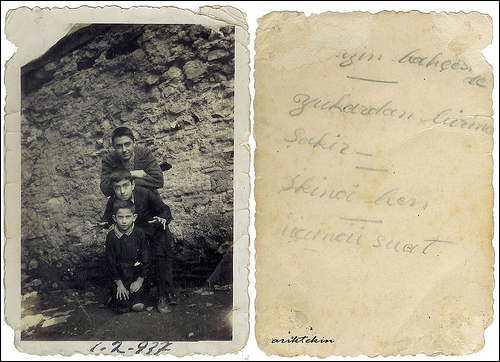 1-2-937
bahçes
de
yukardan birinci
Şakir
İkinci ben
üçüncü suat
ariktekin